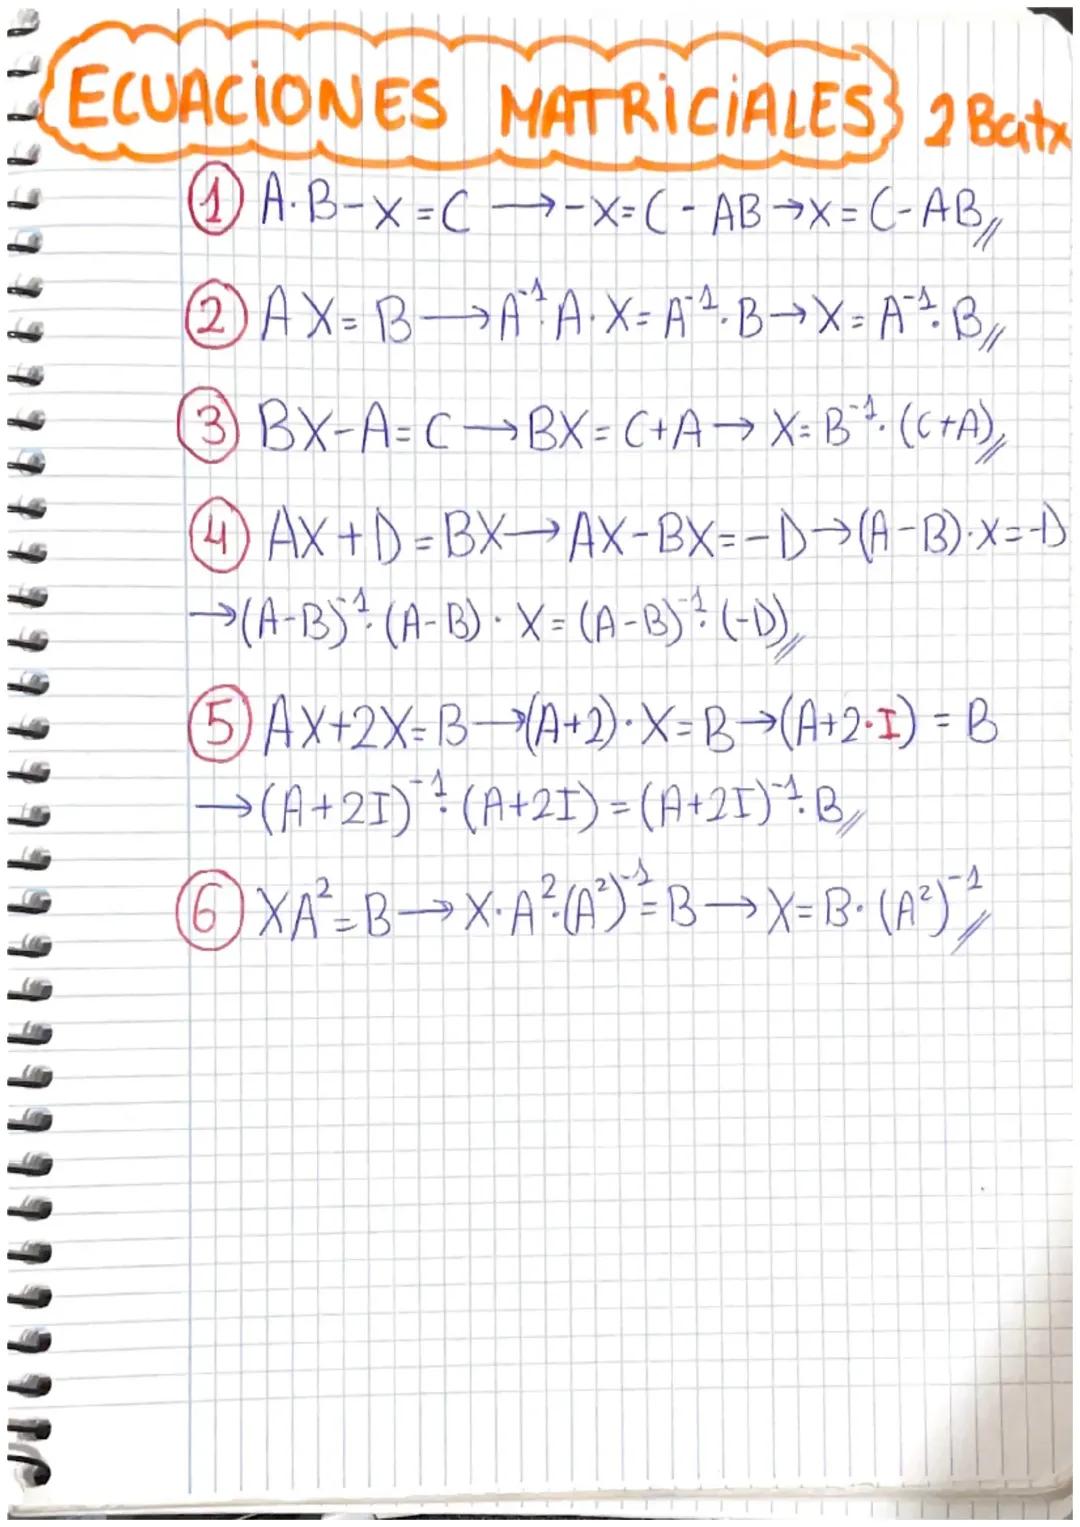 ECUACIONES MATRICIALES 2 Batx
① A·B-X=C → -X=C-AB → X=C-AB//
② AX=B → A⁻¹·A·X=A⁻¹·B → X=A⁻¹·B//
③ BX-A=C → BX=C+A → X=B⁻¹·(C+A)//
④ AX+D=BX → AX-BX=-D → (A-B)·X=-D
→ (A-B)⁻¹·(A-B)·X=(A-B)⁻¹·(-D)//
⑤ AX+2X=B → (A+2)·X=B → (A+2·I)=B
→ (A+2I)⁻¹·(A+2I)=(A+2I)⁻¹·B//
⑥ XA²=B → X·A²·(A²)⁻¹=B → X=B·(A²)⁻¹//